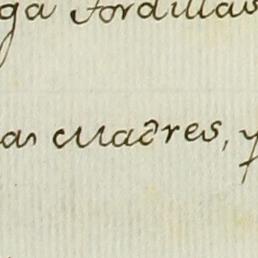 ga Tordillas
as cuadres, y